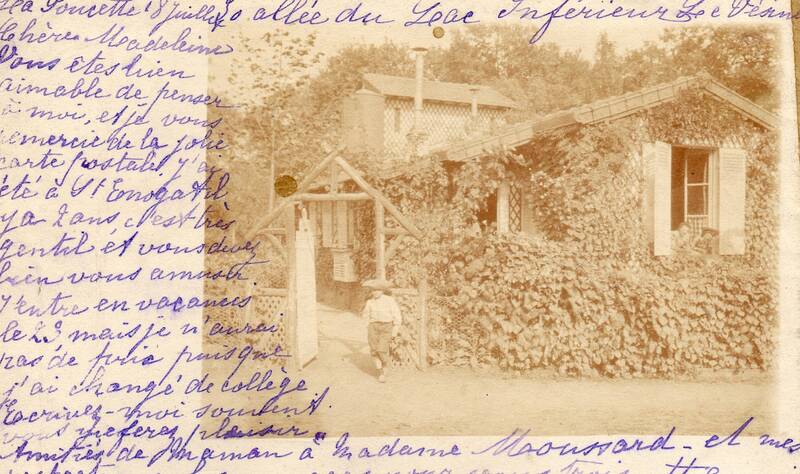 La Poucette 8 Juillet 30 allée du Lac Inférieur Le Vésin
Chère Madeleine
Vous êtes bien
aimable de penser
à moi, et je vous
remercie de la jolie
carte postale. J'ai
été à St Enogat il
y a 2 ans c'est très
gentil et vous devez
bien vous amuser
J'entre en vacances
le 23 mais je n'aurai
pas de prix puisque
j'ai changé de collège
Ecrivez-moi souvent.
vous me ferez plaisir
Amitiés de Maman à Madame Moussard - et mes